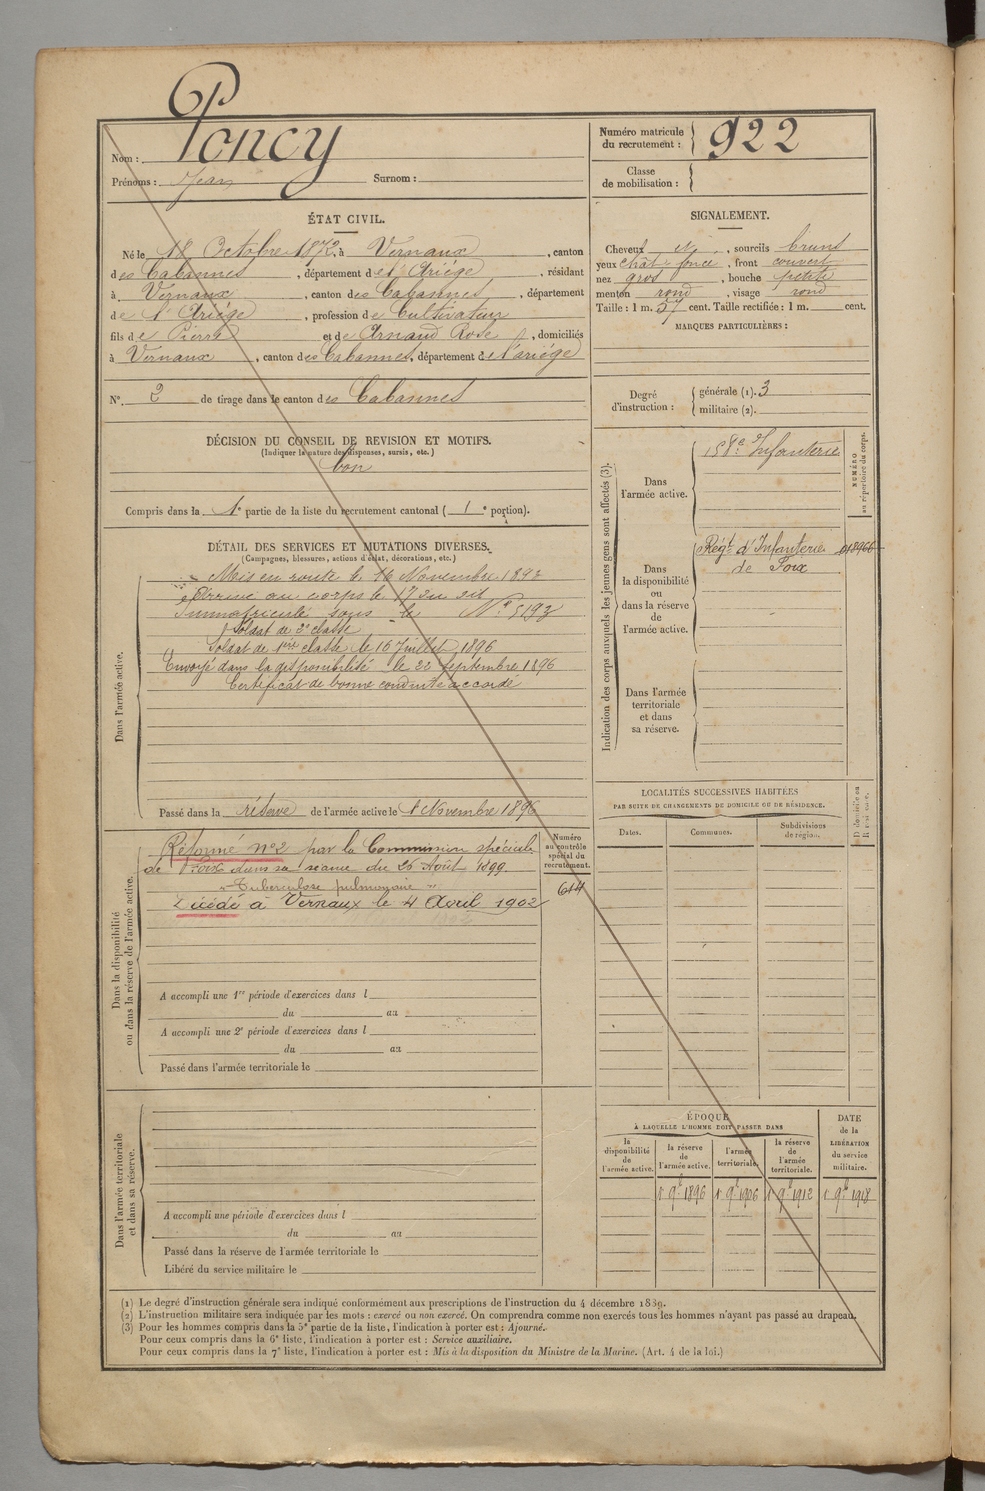 Nom : Poncy
Prénoms : Jean Surnom :
Numéro matricule du recrutement : 922
Classe de mobilisation :
ÉTAT CIVIL.
Né le 18 Octobre 1872, à Vernaux, canton
des Cabannes, département de l'Ariége, résidant
à Vernaux, canton des Cabannes, département
de l'Ariége, profession de Cultivateur
fils de Pierre et de Arnaud Rose, domiciliés
à Vernaux, canton des Cabannes, département de l'ariége
N° 2 de tirage dans le canton des Cabannes
DÉCISION DU CONSEIL DE REVISION ET MOTIFS.
(Indiquer la nature des dispenses, sursis, etc.)
bon
Compris dans la 1e partie de la liste du recrutement cantonal ( 1e portion).
SIGNALEMENT.
Cheveux , sourcils bruns
yeux chât foncé, front couvert
nez gros, bouche petite
menton rond, visage rond
Taille : 1 m. 57 cent. Taille rectifiée : 1 m. cent.
MARQUES PARTICULIÈRES :
Degré d'instruction :
générale (1). 3
militaire (2).
Indication des corps auxquels les jeunes gens sont affectés (3).
NUMÉRO au répertoire du corps.
Dans l'armée active.
158e Infanterie
Dans la disponibilité ou dans la réserve de l'armée active.
Régt d'Infanterie
de Foix
Dans l'armée territoriale et dans sa réserve.
DÉTAIL DES SERVICES ET MUTATIONS DIVERSES.
(Campagnes, blessures, actions d'éclat, décorations, etc.)
Dans l'armée active.
Mis en route le 16 Novembre 1893
Arrivé au corps le 17 du dit
Immatriculé sous le N° 5193
Soldat de 2e classe
Soldat de 1ère classe le 16 Juillet 1896
Envoyé dans la disponibilité le 22 Septembre 1896
Certificat de bonne conduite accordé
Passé dans la réserve de l'armée active le 1 Novembre 1896
Dans la disponibilité ou dans la réserve de l'armée active.
Numéro au contrôle spécial du recrutement.
644
Réformé n°2 par la Commission spéciale
de Foix dans sa séance du 26 Août 1899.
"Tuberculose pulmonaire"
Décédé à Vernaux le 4 Avril 1902
A accompli une 1re période d'exercices dans l
du au
A accompli une 2e période d'exercices dans l
du au
Passé dans l'armée territoriale le
Dans l'armée territoriale et dans sa réserve.
A accompli une période d'exercices dans l
du au
Passé dans la réserve de l'armée territoriale le
Libéré du service militaire le
LOCALITÉS SUCCESSIVES HABITÉES
PAR SUITE DE CHANGEMENTS DE DOMICILE OU DE RÉSIDENCE.
Dates. Communes. Subdivisions de région. D. domicile ou R. résidence.
ÉPOQUE
À LAQUELLE L'HOMME DOIT PASSER DANS
DATE de la LIBÉRATION du service militaire.
la disponibilité de l'armée active.
la réserve de l'armée active.
l'armée territoriale.
la réserve de l'armée territoriale.
1 9e 1896 1 9e 1906 1 9e 1912 1 9e 1918
(1) Le degré d'instruction générale sera indiqué conformément aux prescriptions de l'instruction du 4 décembre 1889.
(2) L'instruction militaire sera indiquée par les mots : exercé ou non exercé. On comprendra comme non exercés tous les hommes n'ayant pas passé au drapeau.
(3) Pour les hommes compris dans la 5e partie de la liste, l'indication à porter est : Ajourné.
Pour ceux compris dans la 6e liste, l'indication à porter est : Service auxiliaire.
Pour ceux compris dans la 7e liste, l'indication à porter est : Mis à la disposition du Ministre de la Marine. (Art. 4 de la loi.)